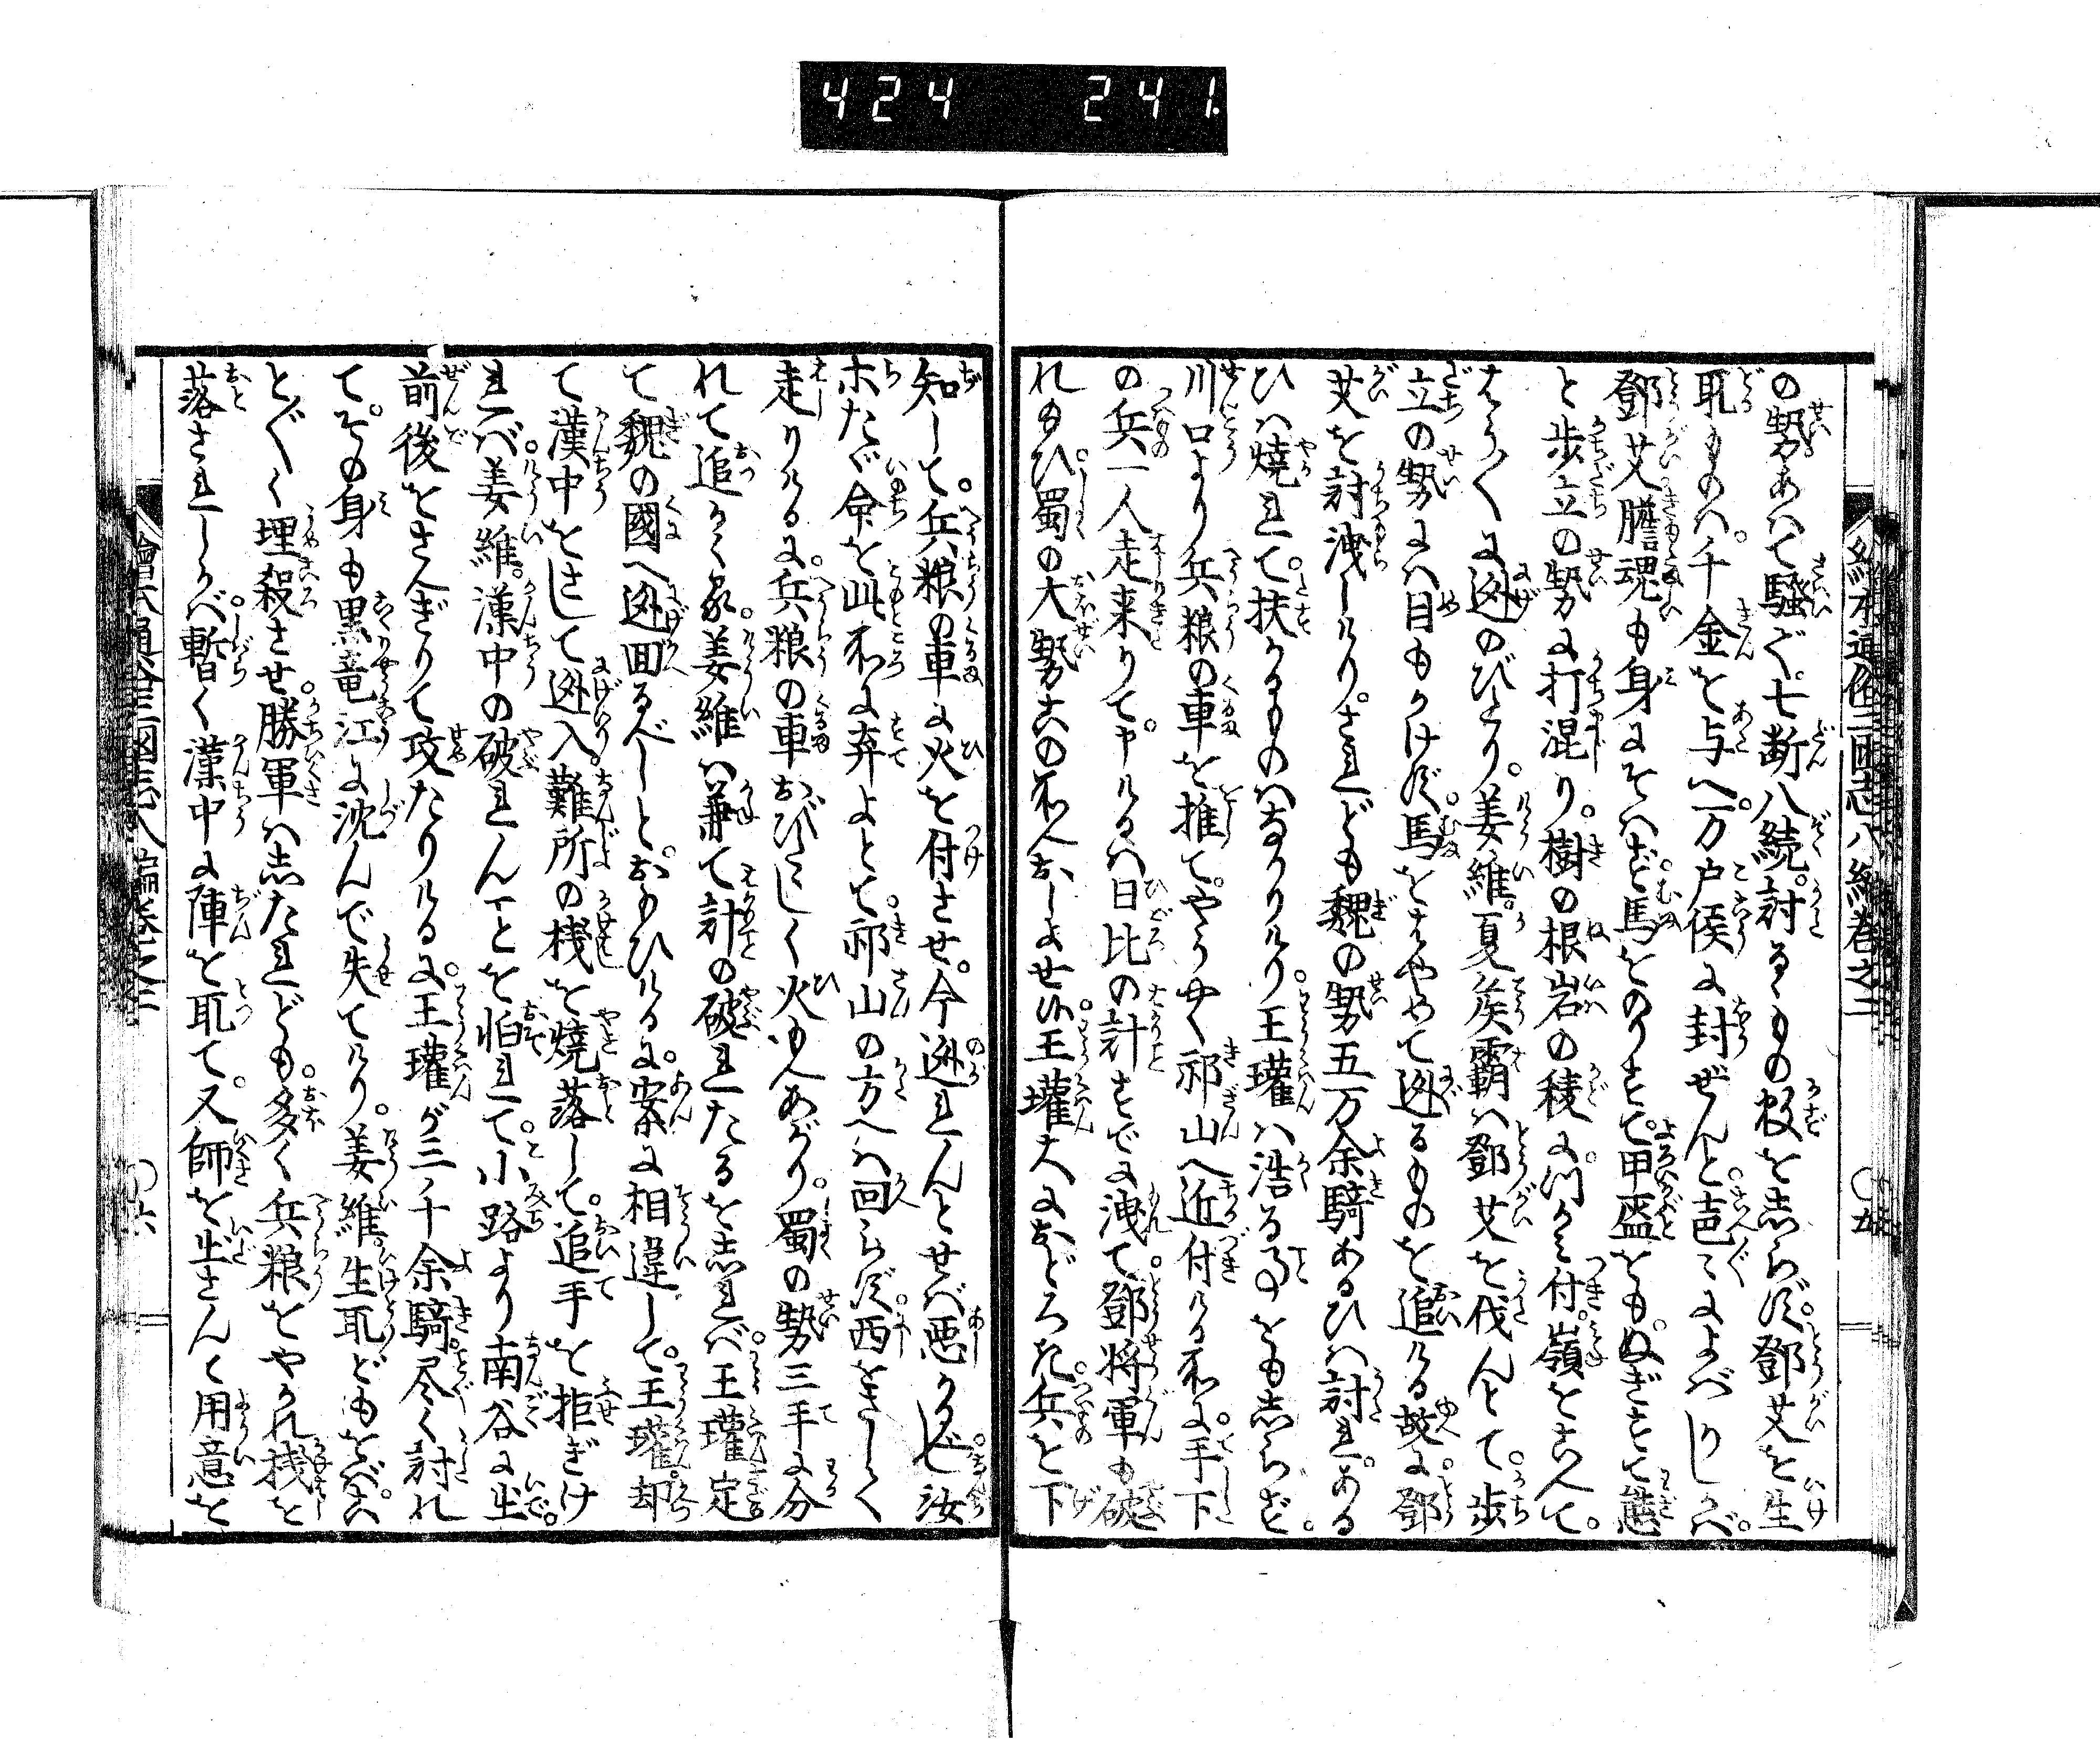 424 241.
の勢あはて騒ぐ。七断八続。討るゝもの数を志らず。鄧艾を生
取ものハ。千金を与へ。万戸侯に封ぜんと。声〻によべりしかバ。
鄧艾膽魂も身にそハず。馬をのりすて。甲盔をもぬぎすて。態
と歩立の勢に打混り。樹の根岩の稜に。つかみ付。嶺をこへて。
はう〱に迯のびたり。姜維。夏侯覇ハ鄧艾を伐んとて。歩
立の勢にハ目もかけず。馬をはやめて迯るものを追ける故に。鄧
艾を討洩しけり。されども魏の勢五万余騎あるひハ討れ。ある
ひハ焼れて。扶かるものハなかりけり。王瓘ハ浩る事をも志らず。
川口より兵粮の車を推て。やうやく祁山へ近付ける所に。手下
の兵一人走来りて。申けるハ日比の計すでに洩て。鄧将軍も破
れ玉ひ。蜀の大勢この所へおしよせ候。王瓘大におどろき。兵を下
知して。兵粮の車に火を付させ。今迯れんとせバ悪かりなん。汝
ホたゞ命を此所に弃よとて。祁山の方へハ回らず。西をさして
走りけるに。兵粮の車おびたゝしく火もえあがり。蜀の勢三手に分
れて追かく。姜維ハ兼て計の破れたるを志れバ。王瓘定
て魏の國へ迯回るべしと。おもひけるに。案に相違して。王瓘。却
て漢中をさして迯入。難所の桟を焼落して。追手を拒ぎけ
れバ。姜維。漢中の破れんことを怕れて。小路より南谷に出。
前後をさへぎりて攻たりけるに。王瓘が三千余騎。尽く討れ
て。その身も黒竜江に沈んで失てけり。姜維。生取どもをバ。
とゞく埋殺させ。勝軍ハ志たれども。多く兵粮をやかれ桟を
落されしかバ。暫く漢中に陣を取て。又師を出さんと用意を